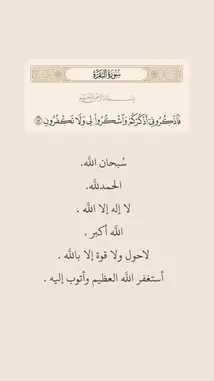 سُورَةُ البَقَرَةِ
بِسْمِ اللَّهِ الرَّحْمَٰنِ الرَّحِيمِ
فَاذْكُرُونِي أَذْكُرْكُمْ وَاشْكُرُوا لِي وَلَا تَكْفُرُونِ ١٥٢
سُبحان اللَّه.
الحمدللَّه.
لا إله إلا اللَّه .
اللَّه أكبر .
لاحول ولا قوة إلا باللَّه .
أستغفر اللَّه العظيم وأتوب إليه .